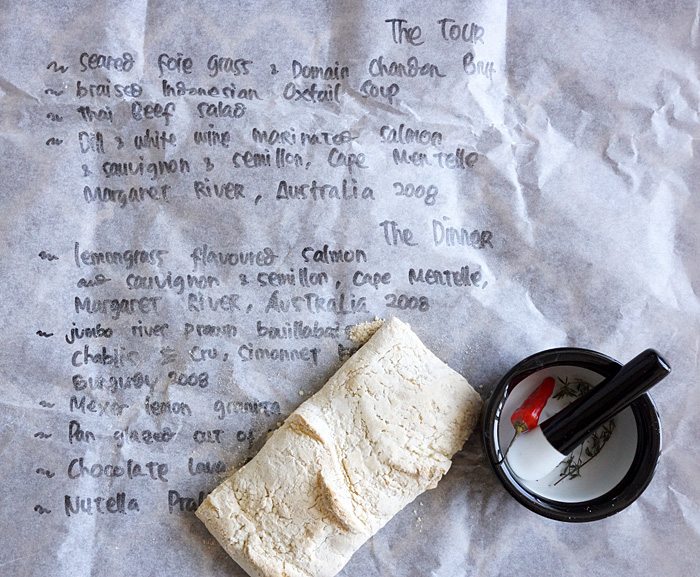 The Tour
~ seared foie grass & Domain Chandon Brut
~ braised Indonesian Oxtail soup
~ Thai Beef salad
~ Dill & white wine marinated salmon
& sauvignon & semillon, Cape Mentelle
Margaret River, Australia 2008
The Dinner
~ lemongrass flavoured salmon
and sauvignon & semillon, Cape Mentelle,
Margaret River, Australia 2008
~ jumbo river prawn
Chablis Cru, Simonnet
2008
~ lemon granita
~ Pan glazed cut of
~ Chocolate lava
~ Nutella